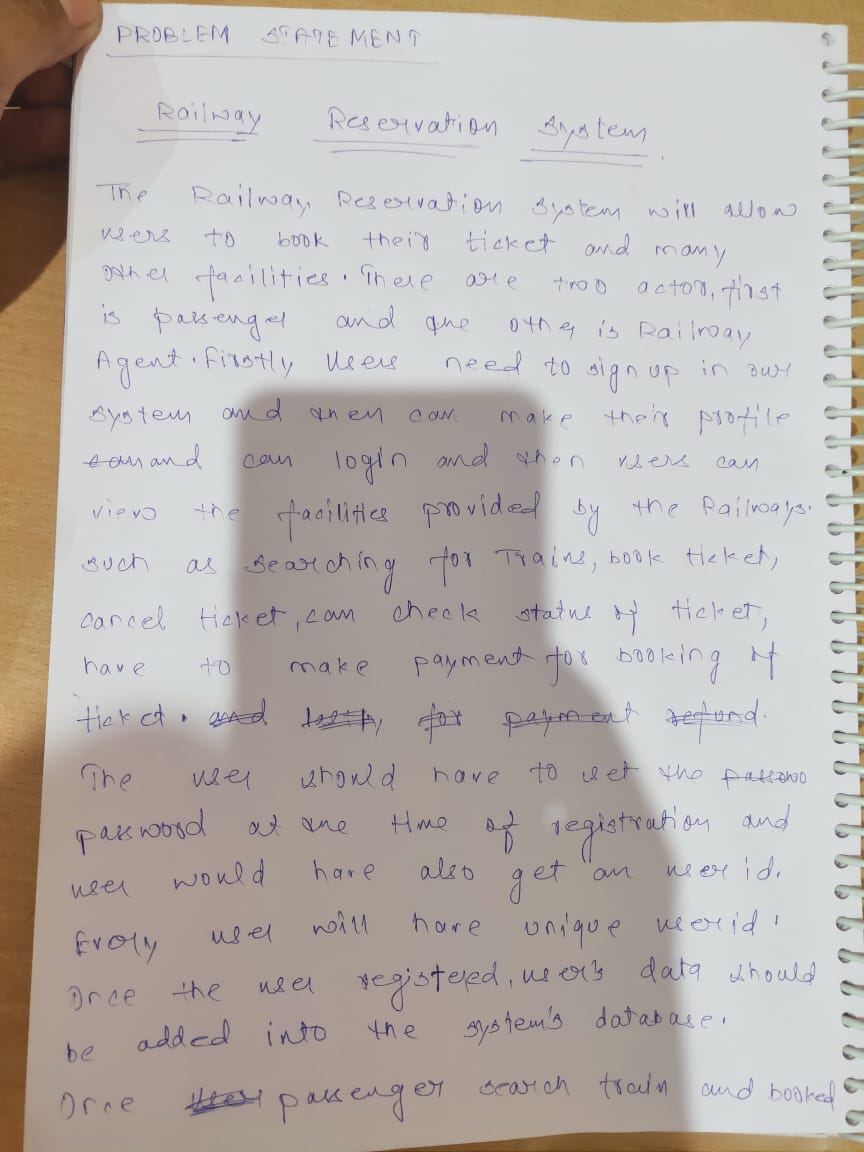 PROBLEM STATEMENT
Railway Reservation System.
The Railway Reservation System will allow
users to book their ticket and many
other facilities. There are two actor, first
is passenger and the other is Railway
Agent. Firstly Users need to sign up in our
system and then can make their profile
can and can login and then users can
view the facilities provided by the Railways.
such as searching for Trains, book ticket,
cancel ticket, can check status of ticket,
have to make payment for booking of
ticket. and for payment refund.
The user should have to set the passwo
password at the time of registration and
user would have also get an user id.
Every user will have unique userid.
Once the user registered, user's data should
be added into the system's database.
Once passenger search train and booked